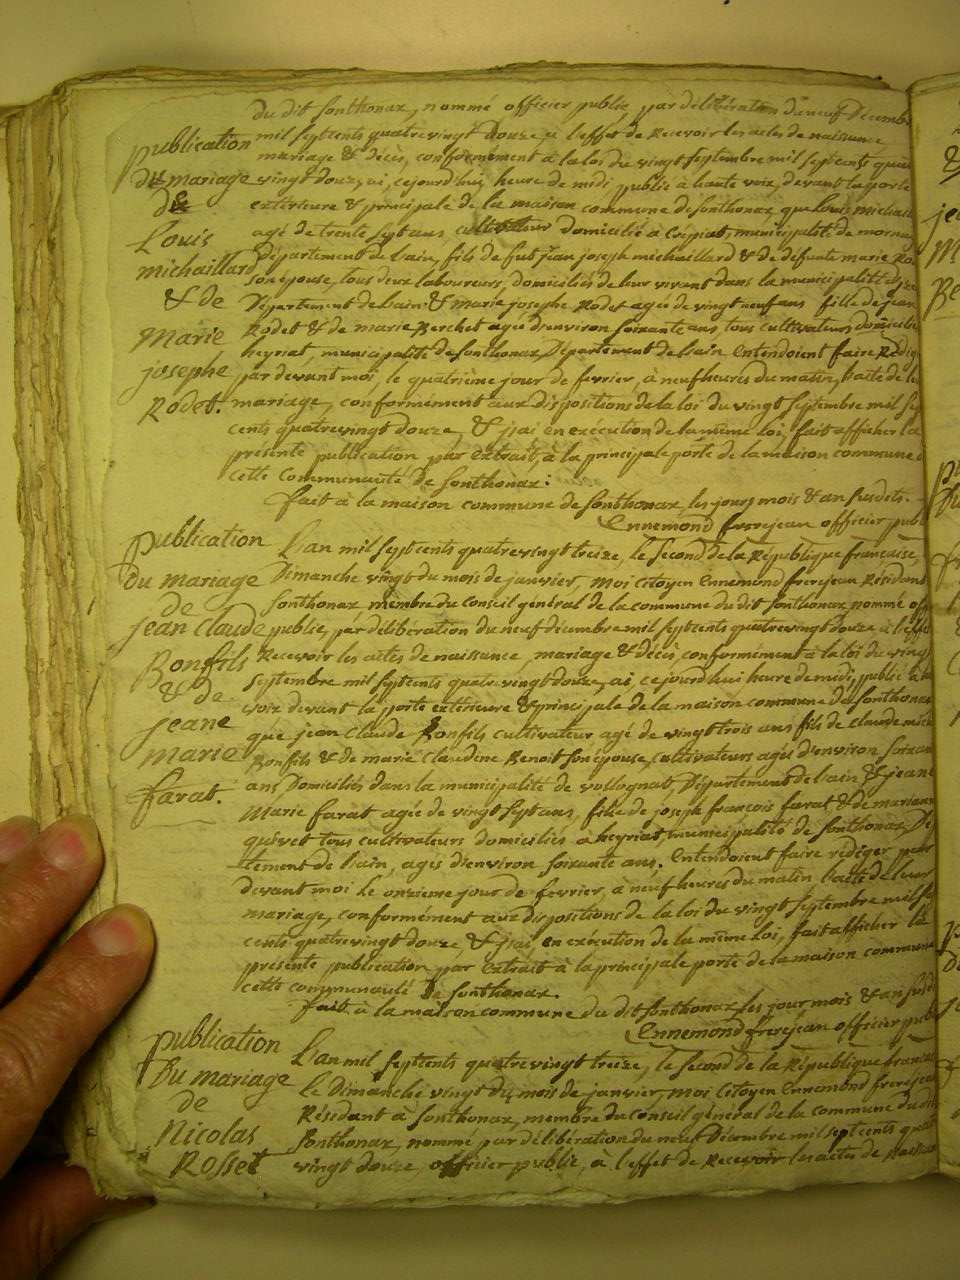 du dit sonthonax, nommé officier public, par délibération du neuf Décembre
mil septcents quatrevingt douze, a l'effet de Recevoir les actes de naissance,
mariage & décès, conformément à la loi du vingt septembre mil septcents quatre
vingt douze, ai, cejourd'hui, heure de midi, publié à haute voix, devant la porte
extérieure & principale de la maison commune de sonthonax, que Louis michaill
agé de trente sept ans, cultivateur domicilié à Crépiat, municipalité de mornay
Département de l'ain, fils de fut jean joseph michaillard & de défunte marie Ro
son épouse, tous deux laboureurs, domiciliés de leur vivant dans la municipalité d
Département de l'ain & marie josephe Rodet agée de vingt neuf ans fille de jean
Rodet & de marie Berchet agée d'environ soixante ans tous cultivateurs domicilié
heyriat, municipalité de sonthonax, Département de l'ain entendoient faire Rédig
par devant moi, le quatrième jour de fevrier, à neuf heures du matin, l'acte de le
mariage, conformement aux dispositions de la loi du vingt septembre mil se
cents quatrevingt douze, & j'ai en execution de la même loi, fait afficher la
présente publication par extrait, à la principale porte de la maison commune
cette Communauté de sonthonax.
fait à la maison commune de sonthonax, les jours mois & an susdits.
Ennemond frerejean officier publ
publication
du mariage
de
Louis
michaillard
& de
Marie
josephe
Rodet.
L'an mil septcents quatrevingt treize, le second de la République francaise,
Dimanche vingt du mois de janvier, moi Citoyen Ennemond frerejean Résidant
sonthonax membre du Conseil général de la commune du dit sonthonax, nommé off
public, par délibération du neuf décembre mil septcents quatrevingt douze à l'effet
Recevoir les actes de naissance, mariage & décès, conformément à la loi du ving
septembre mil septcents quatrevingt douze, ai cejourd'hui heure de midi, publié à h
voix devant la porte extérieure & principale de la maison commune de sonthonax
que jean Claude Bonfils cultivateur agé de vingt trois ans fils de Claude mich
Bonfils & de marie Claudine Benoit son épouse, cultivateurs agés d'environ soixan
ans Domiciliés dans la municipalité de vollognat, Département de l'ain & jeane
Marie farat agée de vingt sept ans, fille de joseph françois farat & de mariane
quivet tous cultivateurs domiciliés a heyriat, municipalité de sonthonax, Dé
tement de l'ain, agés d'environ soixante ans. Entendoient faire rédiger par
devant moi Le onzieme jour de fevrier, à neuf heures du matin l'acte de leur
mariage, conformément aux dispositions de la loi du vingt septembre mil se
cents quatrevingt douze, & j'ai, en exécution de la même Loi, fait afficher la
présente publication par extrait à la principale porte de la maison commune
cette communauté de sonthonax.
fait à la maison commune du dit sonthonax les jour mois & an susd
Ennemond frerejean officier pub
publication
du mariage
de
jean Claude
Bonfils
& de
jeane
marie
farat.
L'an mil septcents quatrevingt treize, le second de la République francai
Le Dimanche vingt du mois de janvier, moi Citoyen Ennemond frerejea
Résidant à sonthonax, membre du Conseil général de la commune du di
sonthonax, nommé par délibération du neuf Décembre mil septcents quat
vingt douze, officier public, à l'effet de Recevoir les actes de Naissan
publication
Du mariage
de
Nicolas
Rosset